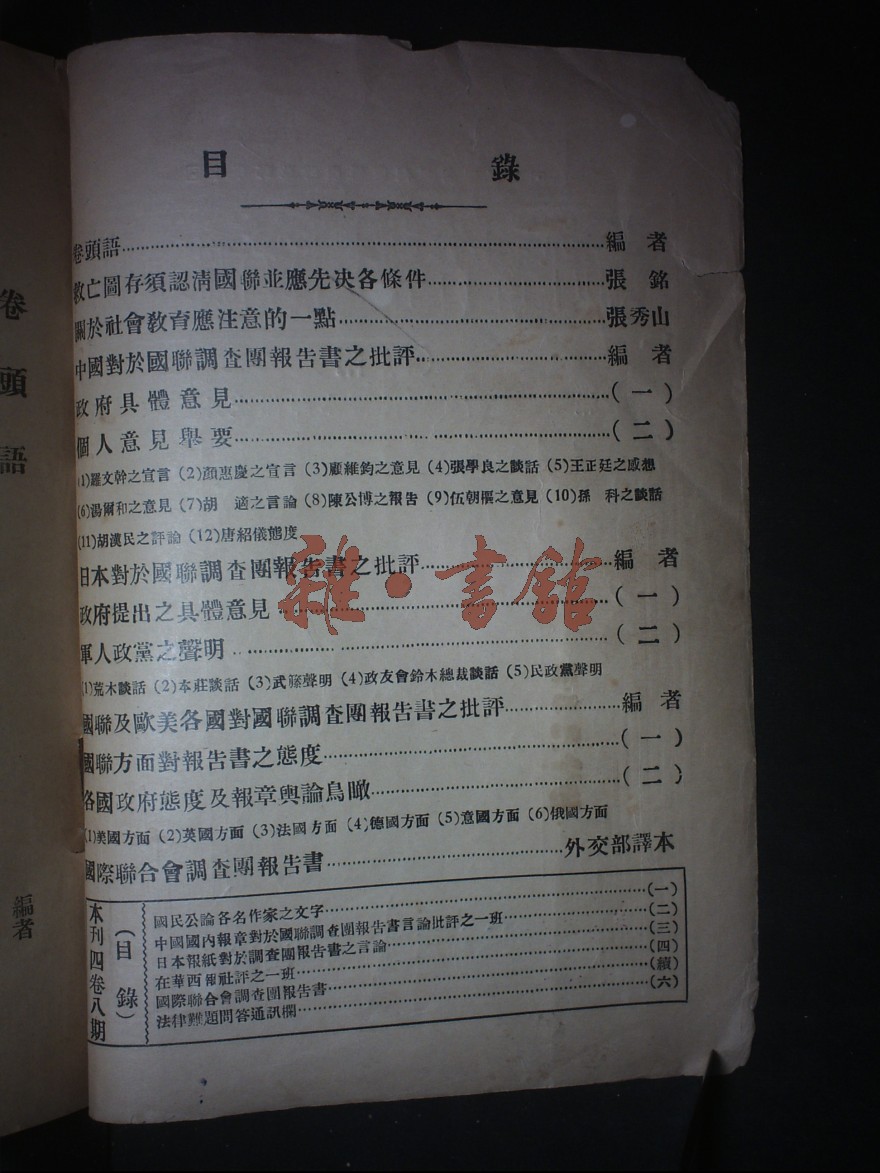 目錄
卷頭語……編者
救亡圖存須認清國聯並應先決各條件……張銘
關於社會教育應注意的一點……張秀山
中國對於國聯調查團報告書之批評……編者
政府具體意見……(一)
個人意見舉要……(二)
(1)羅文幹之宣言 (2)顏惠慶之宣言 (3)顧維鈞之意見 (4)張學良之談話 (5)王正廷之感想
(6)湯爾和之意見 (7)胡 適之言論 (8)陳公博之報告 (9)伍朝樞之意見 (10)孫 科之談話
(11)胡漢民之評論 (12)唐紹儀態度
日本對於國聯調查團報告書之批評……編者
政府提出之具體意見……(一)
軍人政黨之聲明……(二)
(1)荒木談話 (2)本莊談話 (3)武藤聲明 (4)政友會鈴木總裁談話 (5)民政黨聲明
國聯及歐美各國對國聯調查團報告書之批評……編者
國聯方面對報告書之態度……(一)
各國政府態度及報章輿論鳥瞰……(二)
(1)美國方面 (2)英國方面 (3)法國方面 (4)德國方面 (5)意國方面 (6)俄國方面
國際聯合會調查團報告書……外交部譯本
本刊四卷八期
(目錄)
國民公論各名作家之文字……(一)
中國國內報章對於國聯調查團報告書言論批評之一班……(二)
日本報紙對於調查團報告書之言論……(三)
在華西報社評之一班……(四)
國際聯合會調查團報告書……(續)
法律難題問答通訊欄……(六)
卷頭語
編者
雜·書館